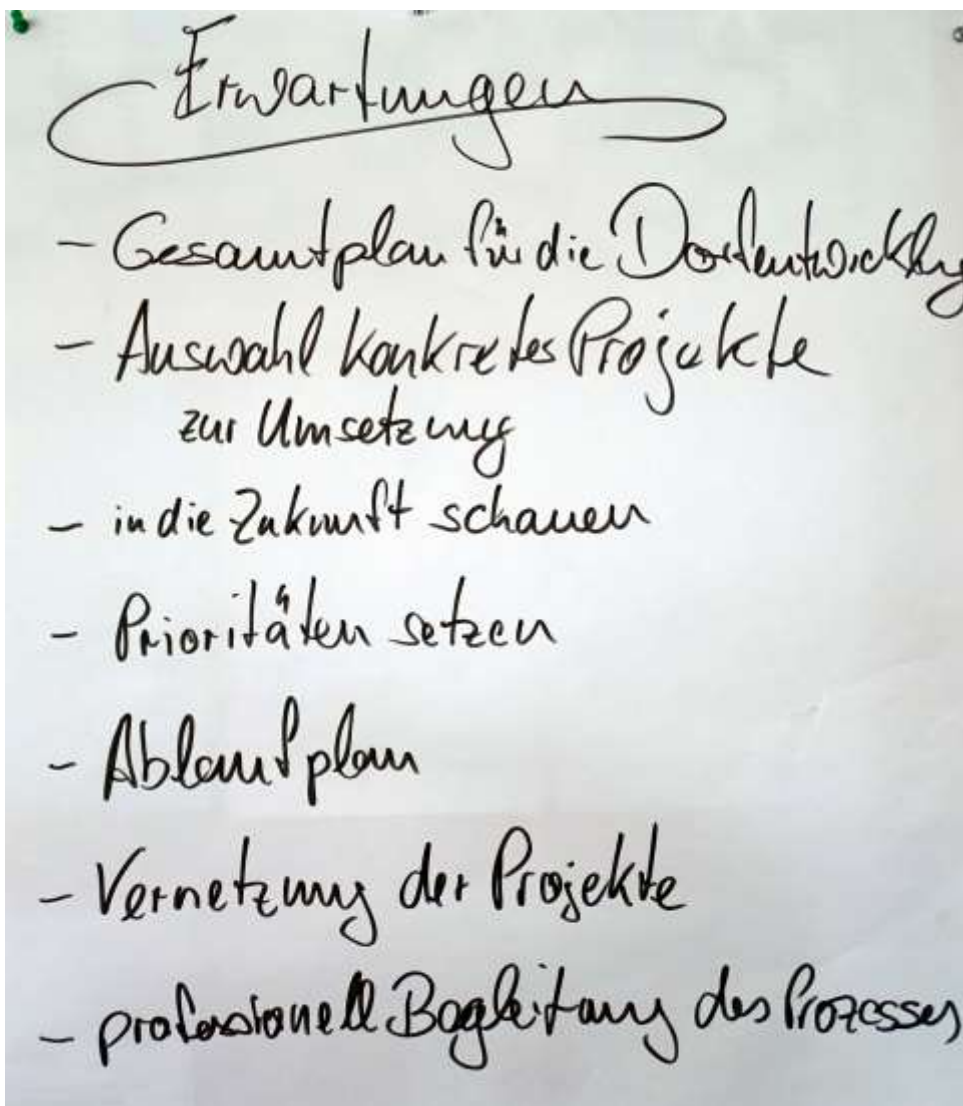 Erwartungen
- Gesamtplan für die Dorfentwicklung
- Auswahl konkretes Projekte
zur Umsetzung
- in die Zukunft schauen
- Prioritäten setzen
- Ablaufplan
- Vernetzung der Projekte
- professionell Begleitung des Prozesses